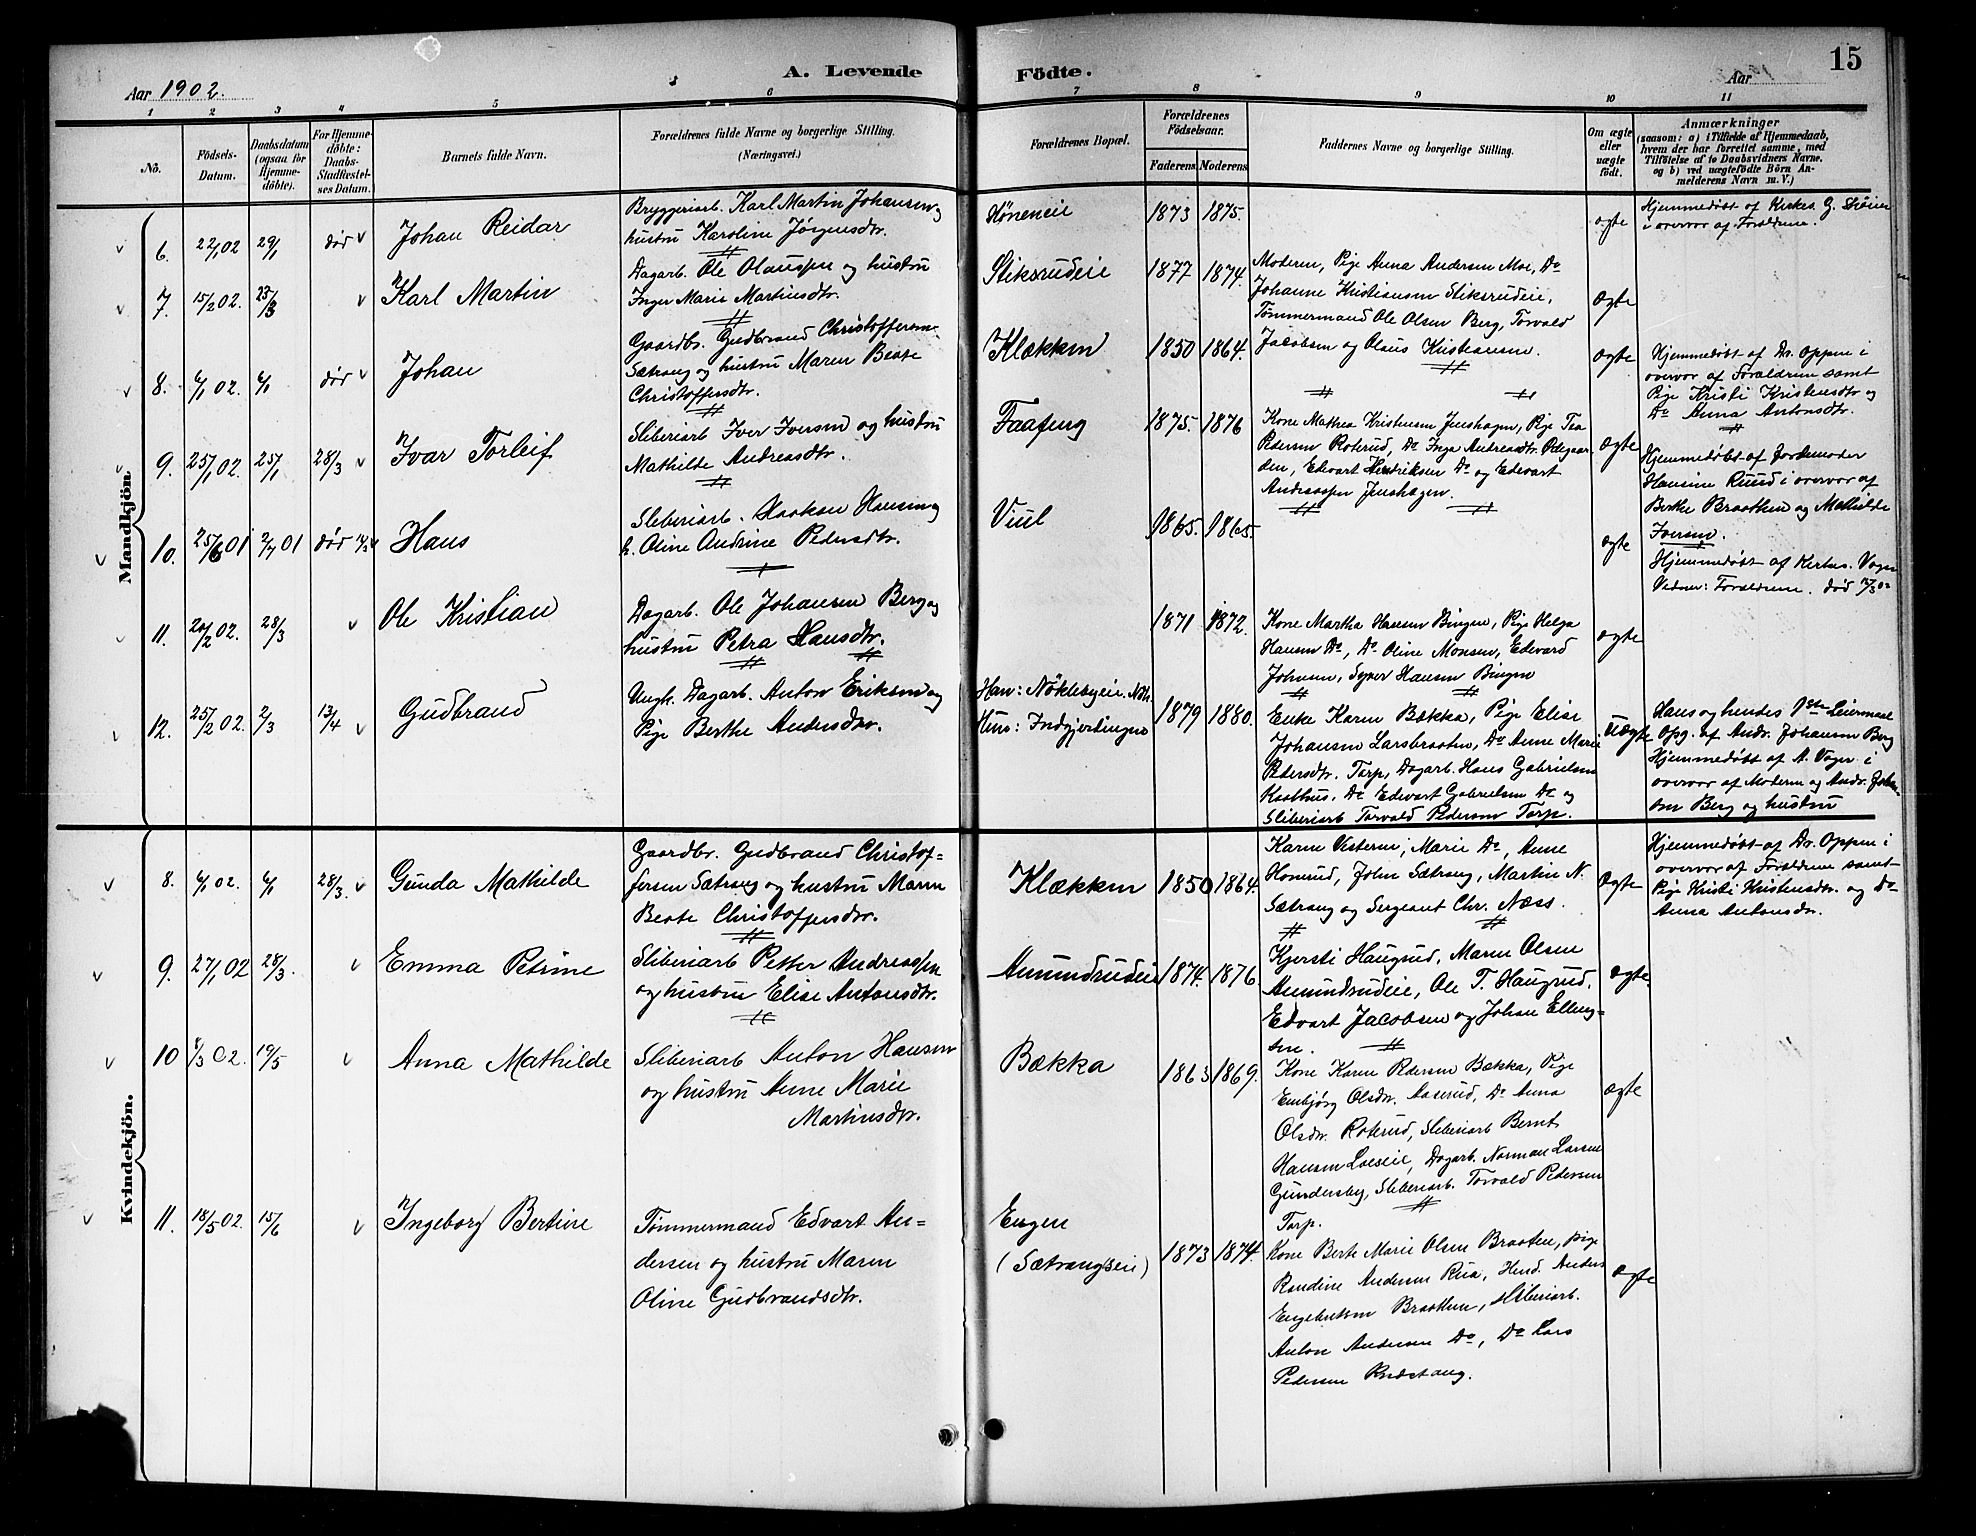 15
A. Levende Födte.
Aar 1902.
Aar
1 2 3 4 5 6 7 8 9 10 11
No.
Födsels-Datum.
Daabsdatum (ogsaa for Hjemme-döbte).
For Hjemme-döbte: Daabs-Stadfæstel-ses Datum.
Barnets fulde Navn.
Forældrenes fulde Navne og borgerlige Stilling.
(Næringsvei.)
Forældrenes Bopæl.
Forældrenes Födselsaar.
Faderens Moderens
Faddernes Navne og borgerlige Stilling.
Om ægte eller uægte födt.
Anmærkninger
(saasom: a) i Tilfælde af Hjemmedaab,
hvem der har forrettet samme, med
Tilföielse af to Daabsvidners Navne.
og b) ved uægtefödte Börn An-
melderens Navn m. V.)
Mandkjön
6. 22/1 02 29/1 död Johan Reidar
Bryggeriarb. Karl Martin Johansen og
hustru Karoline Jörgensdtr.
Höneneie 1873 1875. ægte
Hjemmedöbt af Kirkes. G.
i overvær af Forældrene.
7. 15/2 02. 23/3 Karl Martin
Dagarb. Ole Olaussen og hustru
Inger Marie Martinsdtr.
Stiksrudeie 1877 1874.
Moderen, Pige Anna Andersen Moe, Do
Johanne Kristiansen Stiksrudeie,
Tömmermand Ole Olsen Berg, Torvald
Jacobsen og Olaus Kristiansen.
ægte
8. 6/1 02. 6/1 död Johan
Gaardbr. Gudbrand Christoffersen
Sætrang og hustru Maren Beate
Christoffersdtr.
Klækken 1850 1864. ægte
Hjemmedöbt af Dr. Oppen i
overvær af Forældrene samt
Pige Kristi Kristensdtr og
Do Anna Antonsdtr.
9. 25/1 02. 25/1 28/3 Ivar Torleif
Sliberiarb Iver Iversen og hustru
Mathilde Andreasdtr.
Faafeng 1875. 1876
Kone Mathea Kristensen Jenshagen, Pige Tea
Pedersen Roterud, Do Inga Andreasdtr. Ødegaar-
den, Edvart Hendriksen Do og Edevart
Andreassen Jenshagen.
ægte
Hjemmedöbt af Jordemoder
Hansine Ruud i overvær af
Berthe Braathen og Mathilde
Iversen.
10. 25/6 01 7/7 01 död Hans
Sliberiarb. Haaken Hansen og
h. Oline Andrine Pedersdtr.
Viul 1865. 1865. ægte
Hjemmedöbt af Kirkes. Vager
Vidner: Forældrene. död
11. 20/2 02. 28/3 Ole Kristian
Dagarb. Ole Johansen Berg og
hustru Petra Hansdtr.
1871 1872.
Kone Martha Hansen Bingen, Pige Helga
Hansen Do, Do Oline Monsen, Edevard
Johnsen, Syver Hansen Bingen
ægte
12. 25/2 02. 2/3 13/4 Gudbrand
Ungk. Dagarb. Anton Eriksen og
Pige Berthe Andersdtr.
Han: Nöklebyeie. Ndh.
Hun: Indgjerdingen
1879 1880.
Enke Karen Bækka, Pige Elise
Johansen Larsbraaten, Do Anne Marie
Pedersdtr. Tarp, Dagarb. Hans Gabrielsen
Kaathus. Do Edevart Gabrielsen Do og
Sliberiarb Torvald Pedersen Tarp.
uægte
Hans og hendes 1ste Leiermaal
Opg. af Andr. Johansen Berg
Hjemmedöbt af A. Vager i
overvær af Moderen og Andr. Johan-
sen Berg og hustru
Kvindekjön.
8. 6/1 02. 6/1 28/3. Gunda Mathilde
Gaardbr. Gudbrand Christof-
fersen Sætrang og hustru Maren
Beate Christoffersdtr.
Klækken 1850 1864.
Karen Vesteren, Marie Do, Anne
Honerud, John Sætrang, Martin N.
Sætrang og Sergeant Chr. Næss.
ægte
Hjemmedöbt af Dr. Oppen i
overvær af Forældrene samt
Pige Kristi Kristensdtr. og Do
Anna Antonsdtr.
9. 27/1 02 28/3. Emma Petrine
Sliberiarb Petter Andreassen
og hustru Elise Antonsdtr.
Amundrudeie 1874. 1876.
Kjersti Haugrud, Maren Olsen
Amundrudeie, Ole T. Haugrud.
Edvart Jacobsen og Johan Elling-
sen.
ægte.
10 8/3 02. 19/5 Anna Mathilde
Sliberiarb Anton Hansen
og hustru Anne Marie
Martinsdtr.
Bækka 1863 1869.
Kone Karen Pedersen Bækka, Pige
Embjörg Olsdtr. Aaserud, Do Anna
Olsdtr. Roterud, Sliberiarb Bernt
Hansen Loeseie, Dagarb. Norman Larsen
Gundersby, Sliberiarb. Torvald Pedersen
Tarp.
ægte
11. 18/5 02. 15/6 Ingeborg Bertine
Tömmermand Edvart An-
dersen og hustru Maren
Oline Gudbrandsdtr.
Engen
(Sætrangseie)
1873 1874.
Kone Berte Marie Olsen Braaten, Pige
Randine Andersen Rua, Hmd. Anders
Engebretsen Braathen, Sliberiarb.
Anton Andersen Do, Do Lars
Pedersen
ægte